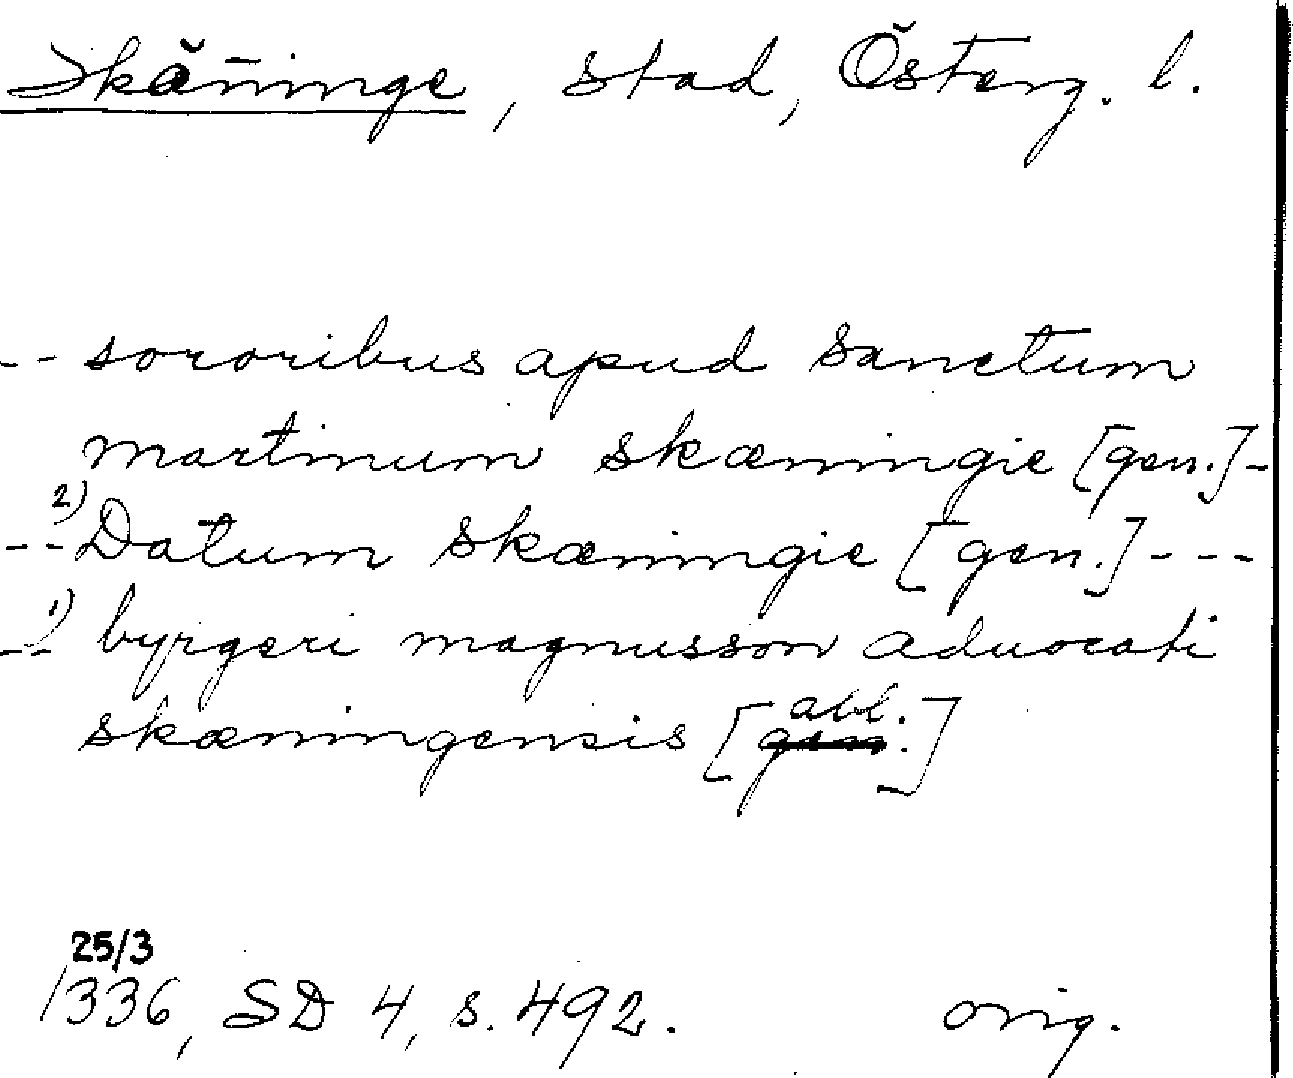 Skäninge, stad, Österg. l.
-- sororibus apud sanctum
martinum skæningie [gen.]-
--2) Datum skæningie [gen.]---
--1) byrgeri magnusson aduocati
skæningensis [abl.]
25/3
1336, SD 4, s. 492. orig.